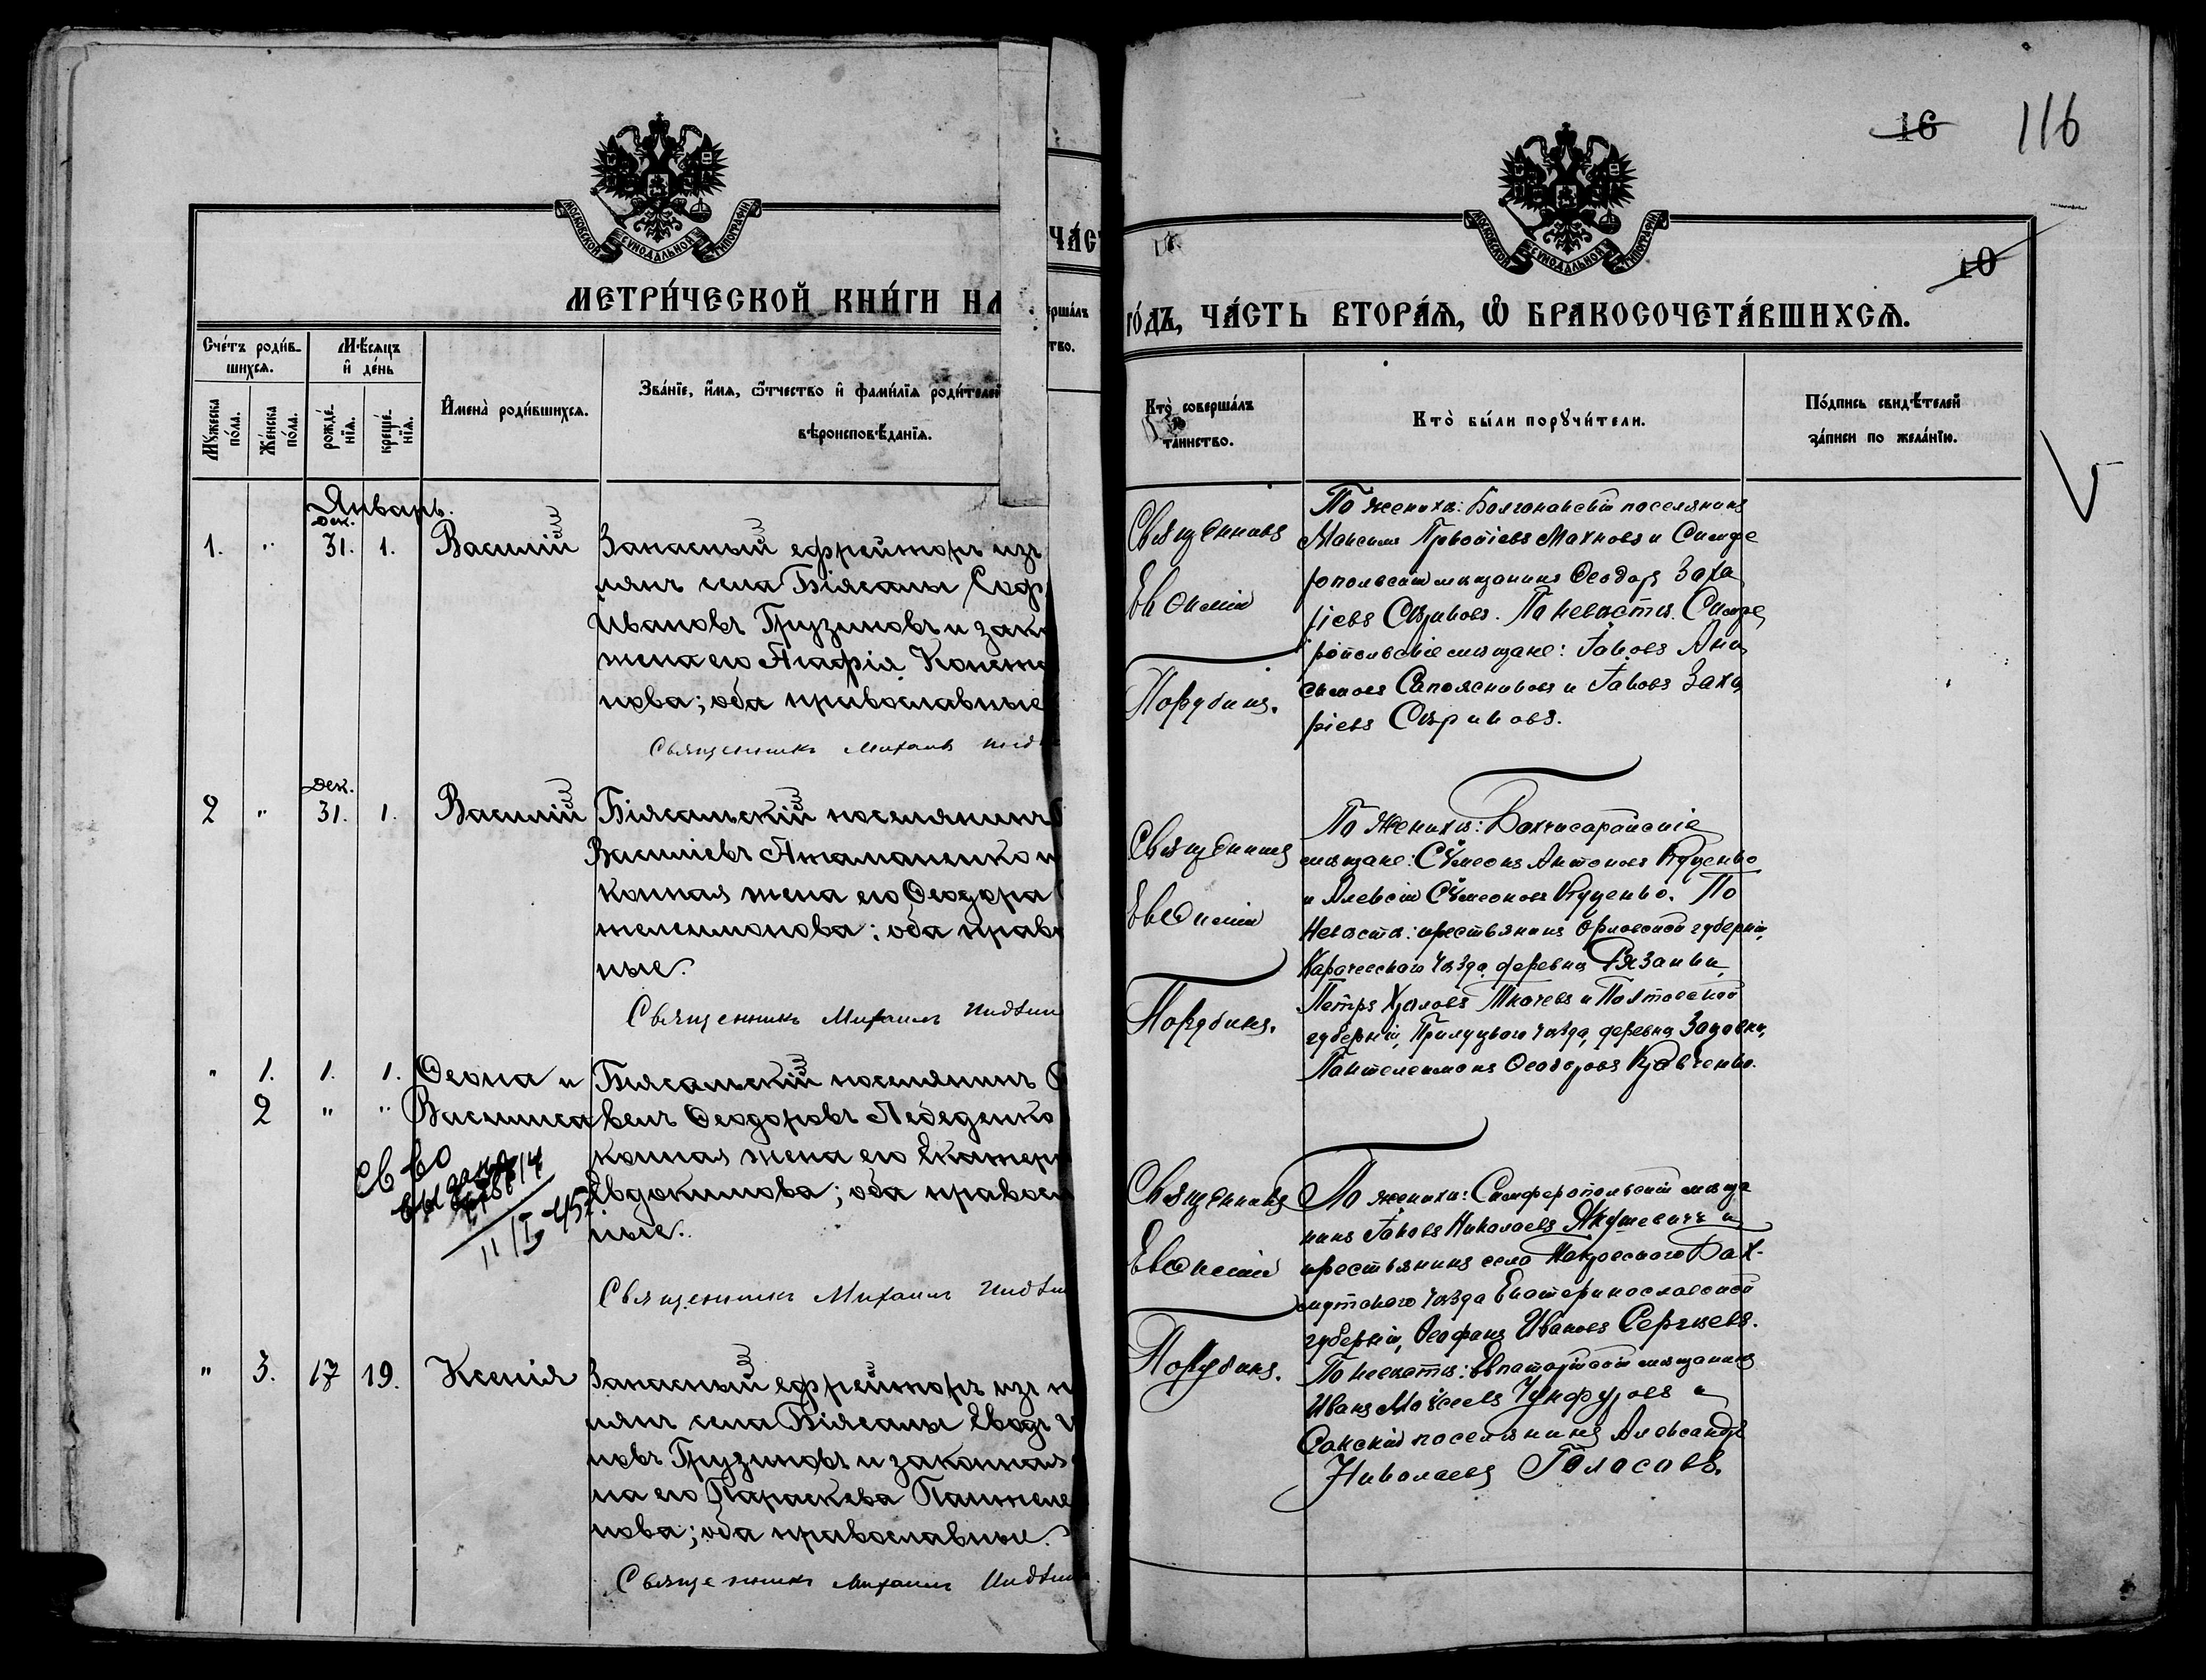 МОСКОВСКОЙ СѴНОДАЛЬНОЙ ТИПОГРАФІИ
МЕТРИ́ЧЕСКОЙ КНИ́ГИ НА
Сче́тъ роди́в-
шихся.
Мѣ́сяцъ
и҆ де́нь
Му́жеска
по́ла.
Же́нска
по́ла.
рожде́-
нїя.
креще́-
нїя.
И҆мена̀ роди́вшихся.
Зва́нїе, и҆́мя, ѻ҆́тчество и҆ фами́лїя роди́телей
вѣроисповѣ́данїя.
Январь.
Дек.
1. " 31. 1. Василій Запасный ефрейторъ изъ
лянъ села Біясалы Соф
Ивановъ Грузиновъ и зако
жена его Агафія Конста
нова; оба православные
Священникъ Михаилъ
Дек.
2 " 31. 1. Василій Біясальскій поселянинъ
Васильевъ Атаманенко и
конная жена его Ѳеодора
телеимонова; оба прав
ные.
Священникъ Михаилъ
" 1. 1. 1. Ѳеона и Біясальскій поселянинъ
2 " " Василиса велъ Ѳеодоровъ Лебеденко
конная жена его Екатер
Евдокимова; оба правос
ные.
св во
11/I 45
Священникъ Михаилъ
" 3. 17 19. Ксенія Запасный ефрейторъ изъ п
лянъ села Біясалы Евод
новъ Грузиновъ и законная
на его Параскева Пантеле
нова; оба православные.
Священникъ Михаилъ
ЧА́С
ершалъ
тво.
16 116
10
МОСКОВСКОЙ СѴНОДАЛЬНОЙ ТИПОГРАФІИ
ГО́ДЪ, ЧА́СТЬ ВТОРА́Я, Ѡ҆ БРАКОСОЧЕТА́ВШИХСЯ.
Кто̀ соверша́лъ
та́инство.
Кто̀ бы́ли порꙋчи́тели.
По́дпись свидѣ́телей
за́писи по жела́нїю.
Священникъ
Евѳимій
Порубинъ.
По женихѣ:
поселянинъ
Максимъ Махновъ и Симфе
ропольскій мѣщанинъ Ѳеодоръ Заха
ріевъ Скриковъ. По невѣстѣ: Симфе
ропольскіе мѣщане: Іаковъ Ани
симовъ Сапожниковъ и Іаковъ Заха
ріевъ Скриковъ.
Священникъ
Евѳимій
Порубинъ.
По женихѣ: Бахчисарайскіе
мѣщане: Сѵмеонъ Антоновъ Куценко
и Алексій Сѵмеоновъ Куценко. По
Невѣстѣ: крестьянинъ Орловской губерніи,
Карачевскаго уѣзда, деревни Рязанки
Петръ Ткачевъ и Полтавской
губерніи, Прилуцкаго уѣзда, деревни
Пантелеимонъ Ѳеодоровъ Кравченко.
Священникъ
Евѳимій
Порубинъ.
По женихѣ: Симферопольскій мѣща
нинъ Іаковъ Николаевъ Якушевичъ и
крестьянинъ села Покровскаго Бах-
мутскаго уѣзда Екатеринославской
губерніи, Ѳеофанъ Ивановъ Сергѣевъ.
По невѣстѣ: Евпаторійскій мѣщанинъ
Иванъ Моѵсеевъ и
Сакскій поселянинъ Александръ
Николаевъ Голосовъ.